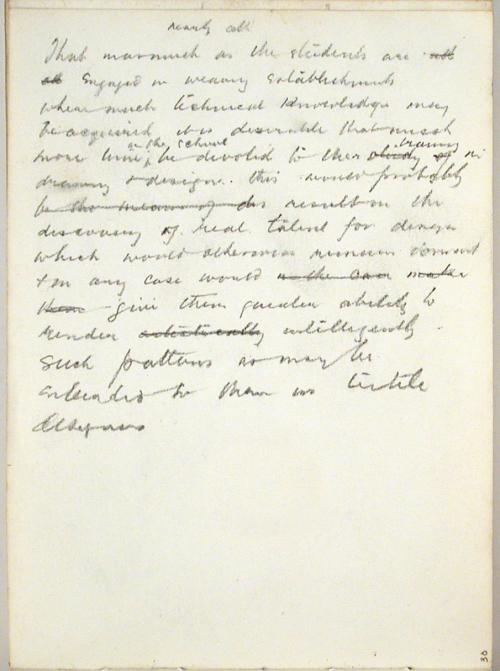 nearly all
That inasmuch as the students are all
all engaged in weaving establishments
where much technical knowledge may
be acquired it is desirable that much
in the school
more time be devoted to their study of training in
drawing & design. this would probably
be the means of dis result in the
discovery of real talent for design
which would otherwise remain dormant
& in any case would in the case make
them give them greater ability to
render artistically intelligently
such patterns as may be
entrusted to them in textile
designs
30